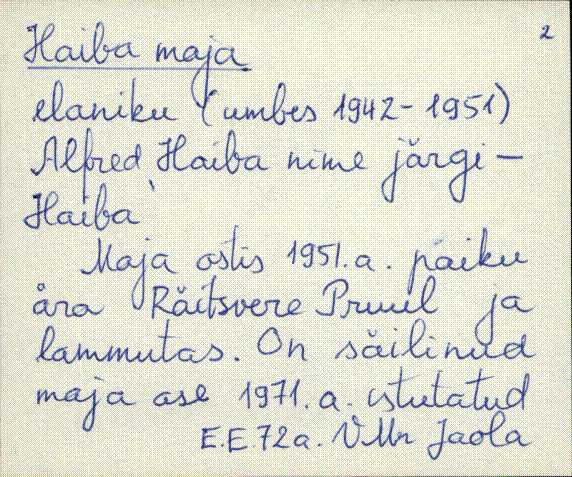 2
Haiba maja
elaniku (umbes 1942-1951)
Alfred Haiba nime järgi –
Haiba
Maja ostis 1951.a. paiku
ära Räitsvere Pruul ja
lammutas. On säilinud
maja ase 1971.a. istutatud
E.E 72a. VMr Jaola